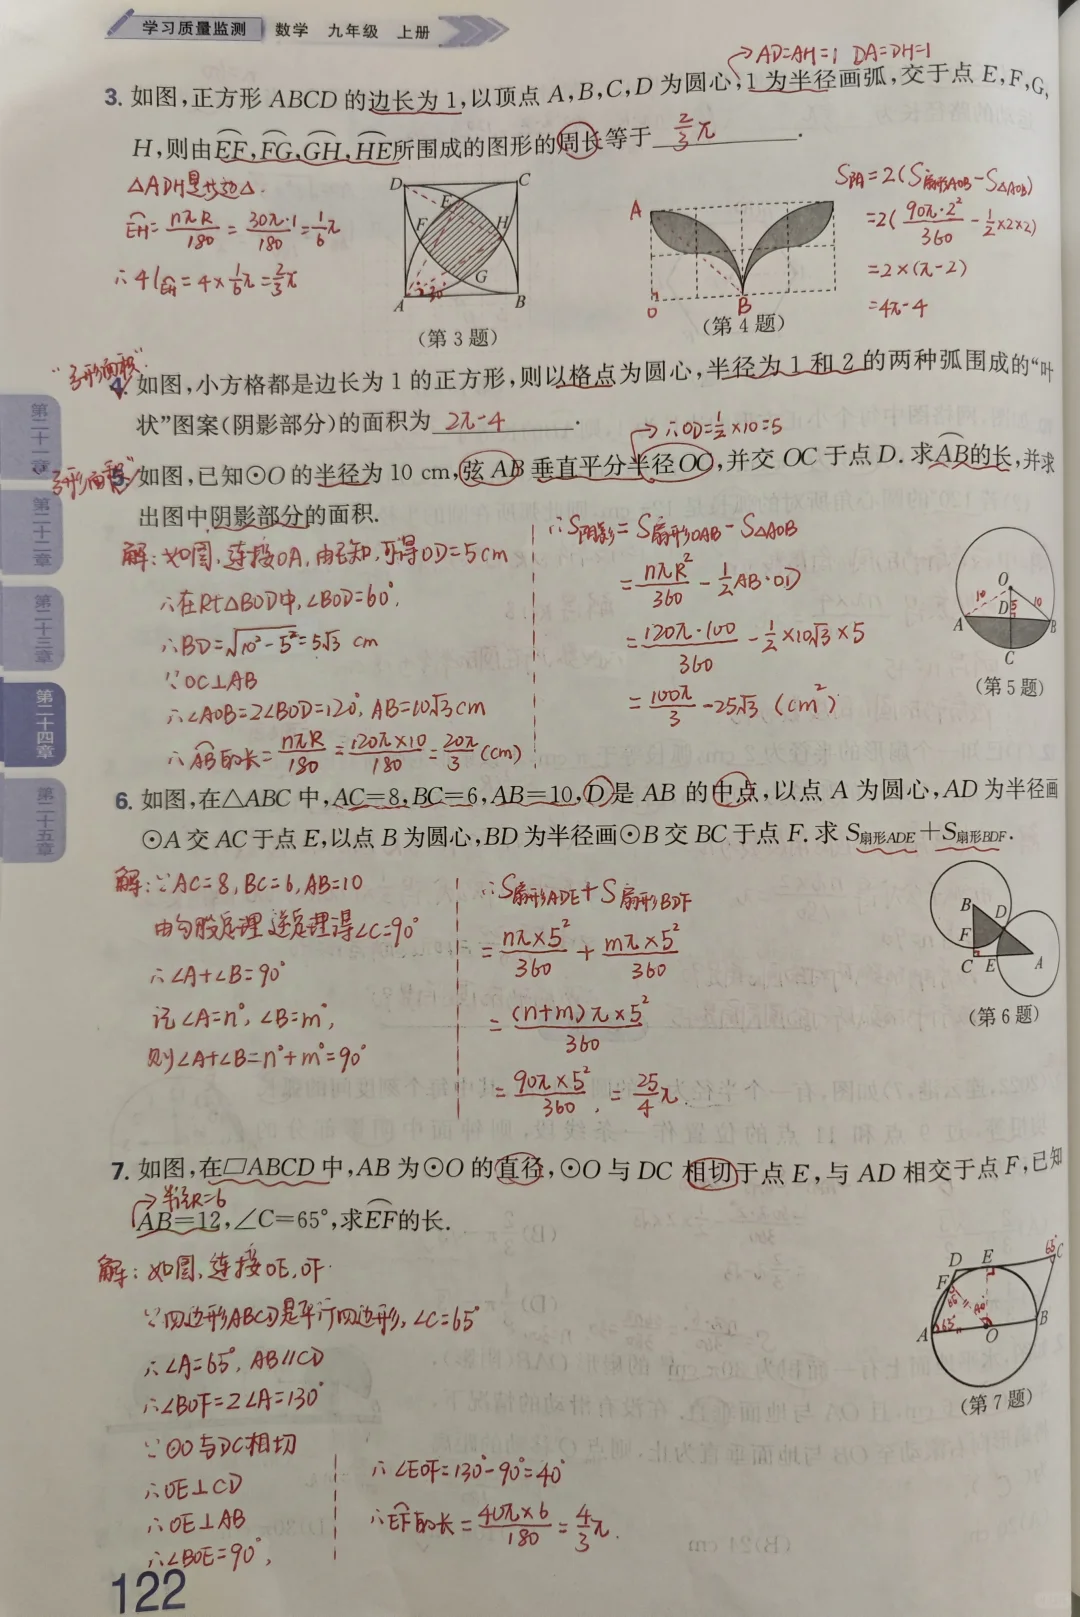 学习质量监测 数学 九年级 上册
→AD=AH=1 DA=DH=1
3. 如图,正方形 ABCD 的边长为 1,以顶点 A,B,C,D 为圆心,1 为半径画弧,交于点 E,F,G,
H,则由EF,FG,GH,HE所围成的图形的周长等于 2/3π .
△ADH是等边△.
EH=nπR/180=30π·1/180=1/6π
∴4lEH=4×1/6π=2/3π
D C
E
F H
G
A 30° B
(第 3 题)
A
O B
(第 4 题)
S阴=2(S扇形AOB-S△AOB)
=2(90π·2²/360-1/2×2×2)
=2×(π-2)
=4π-4
“弓形面积”
4. 如图,小方格都是边长为 1 的正方形,则以格点为圆心,半径为 1 和 2 的两种弧围成的“叶
状”图案(阴影部分)的面积为 2π-4 .
→∴OD=1/2×10=5
弓形面积
5. 如图,已知⊙O 的半径为 10 cm,弦 AB 垂直平分半径 OC,并交 OC 于点 D. 求AB的长,并求
出图中阴影部分的面积.
解:如图,连接OA,由已知,可得OD=5cm
∴在Rt△BOD中,∠BOD=60°,
∴BD=√10²-5²=5√3 cm
∵OC⊥AB
∴∠AOB=2∠BOD=120°,AB=10√3cm
∴AB的长=nπR/180=120π×10/180=20π/3(cm)
∴S阴影=S扇形OAB-S△AOB
=nπR²/360-1/2AB·OD
=120π·100/360-1/2×10√3×5
=100π/3-25√3 (cm²)
O
10 D 5 10
A B
C
(第 5 题)
6. 如图,在△ABC 中,AC=8,BC=6,AB=10,D 是 AB 的中点,以点 A 为圆心,AD 为半径画
⊙A 交 AC 于点 E,以点 B 为圆心,BD 为半径画⊙B 交 BC 于点 F. 求 S扇形ADE+S扇形BDF.
解:∵AC=8,BC=6,AB=10
由勾股定理逆定理得∠C=90°
∴∠A+∠B=90°
记∠A=n°,∠B=m°,
则∠A+∠B=n°+m°=90°
∴S扇形ADE+S扇形BDF
=nπ×5²/360+mπ×5²/360
=(n+m)π×5²/360
=90π×5²/360=25/4π.
B D
F
C E A
(第 6 题)
7. 如图,在□ABCD 中,AB 为⊙O 的直径,⊙O 与 DC 相切于点 E,与 AD 相交于点 F,已知
→半径R=6
AB=12,∠C=65°,求EF的长.
解:如图,连接OE,OF.
∵四边形ABCD是平行四边形,∠C=65°
∴∠A=65°,AB∥CD
∴∠BOF=2∠A=130°
∵⊙O与DC相切
∴OE⊥CD
∴OE⊥AB
∴∠BOE=90°,
∴∠EOF=130°-90°=40°
∴EF的长=40π×6/180=4/3π.
D E 65° C
F
A 65° O B
(第 7 题)
第二十一章
第二十二章
第二十三章
第二十四章
第二十五章
122